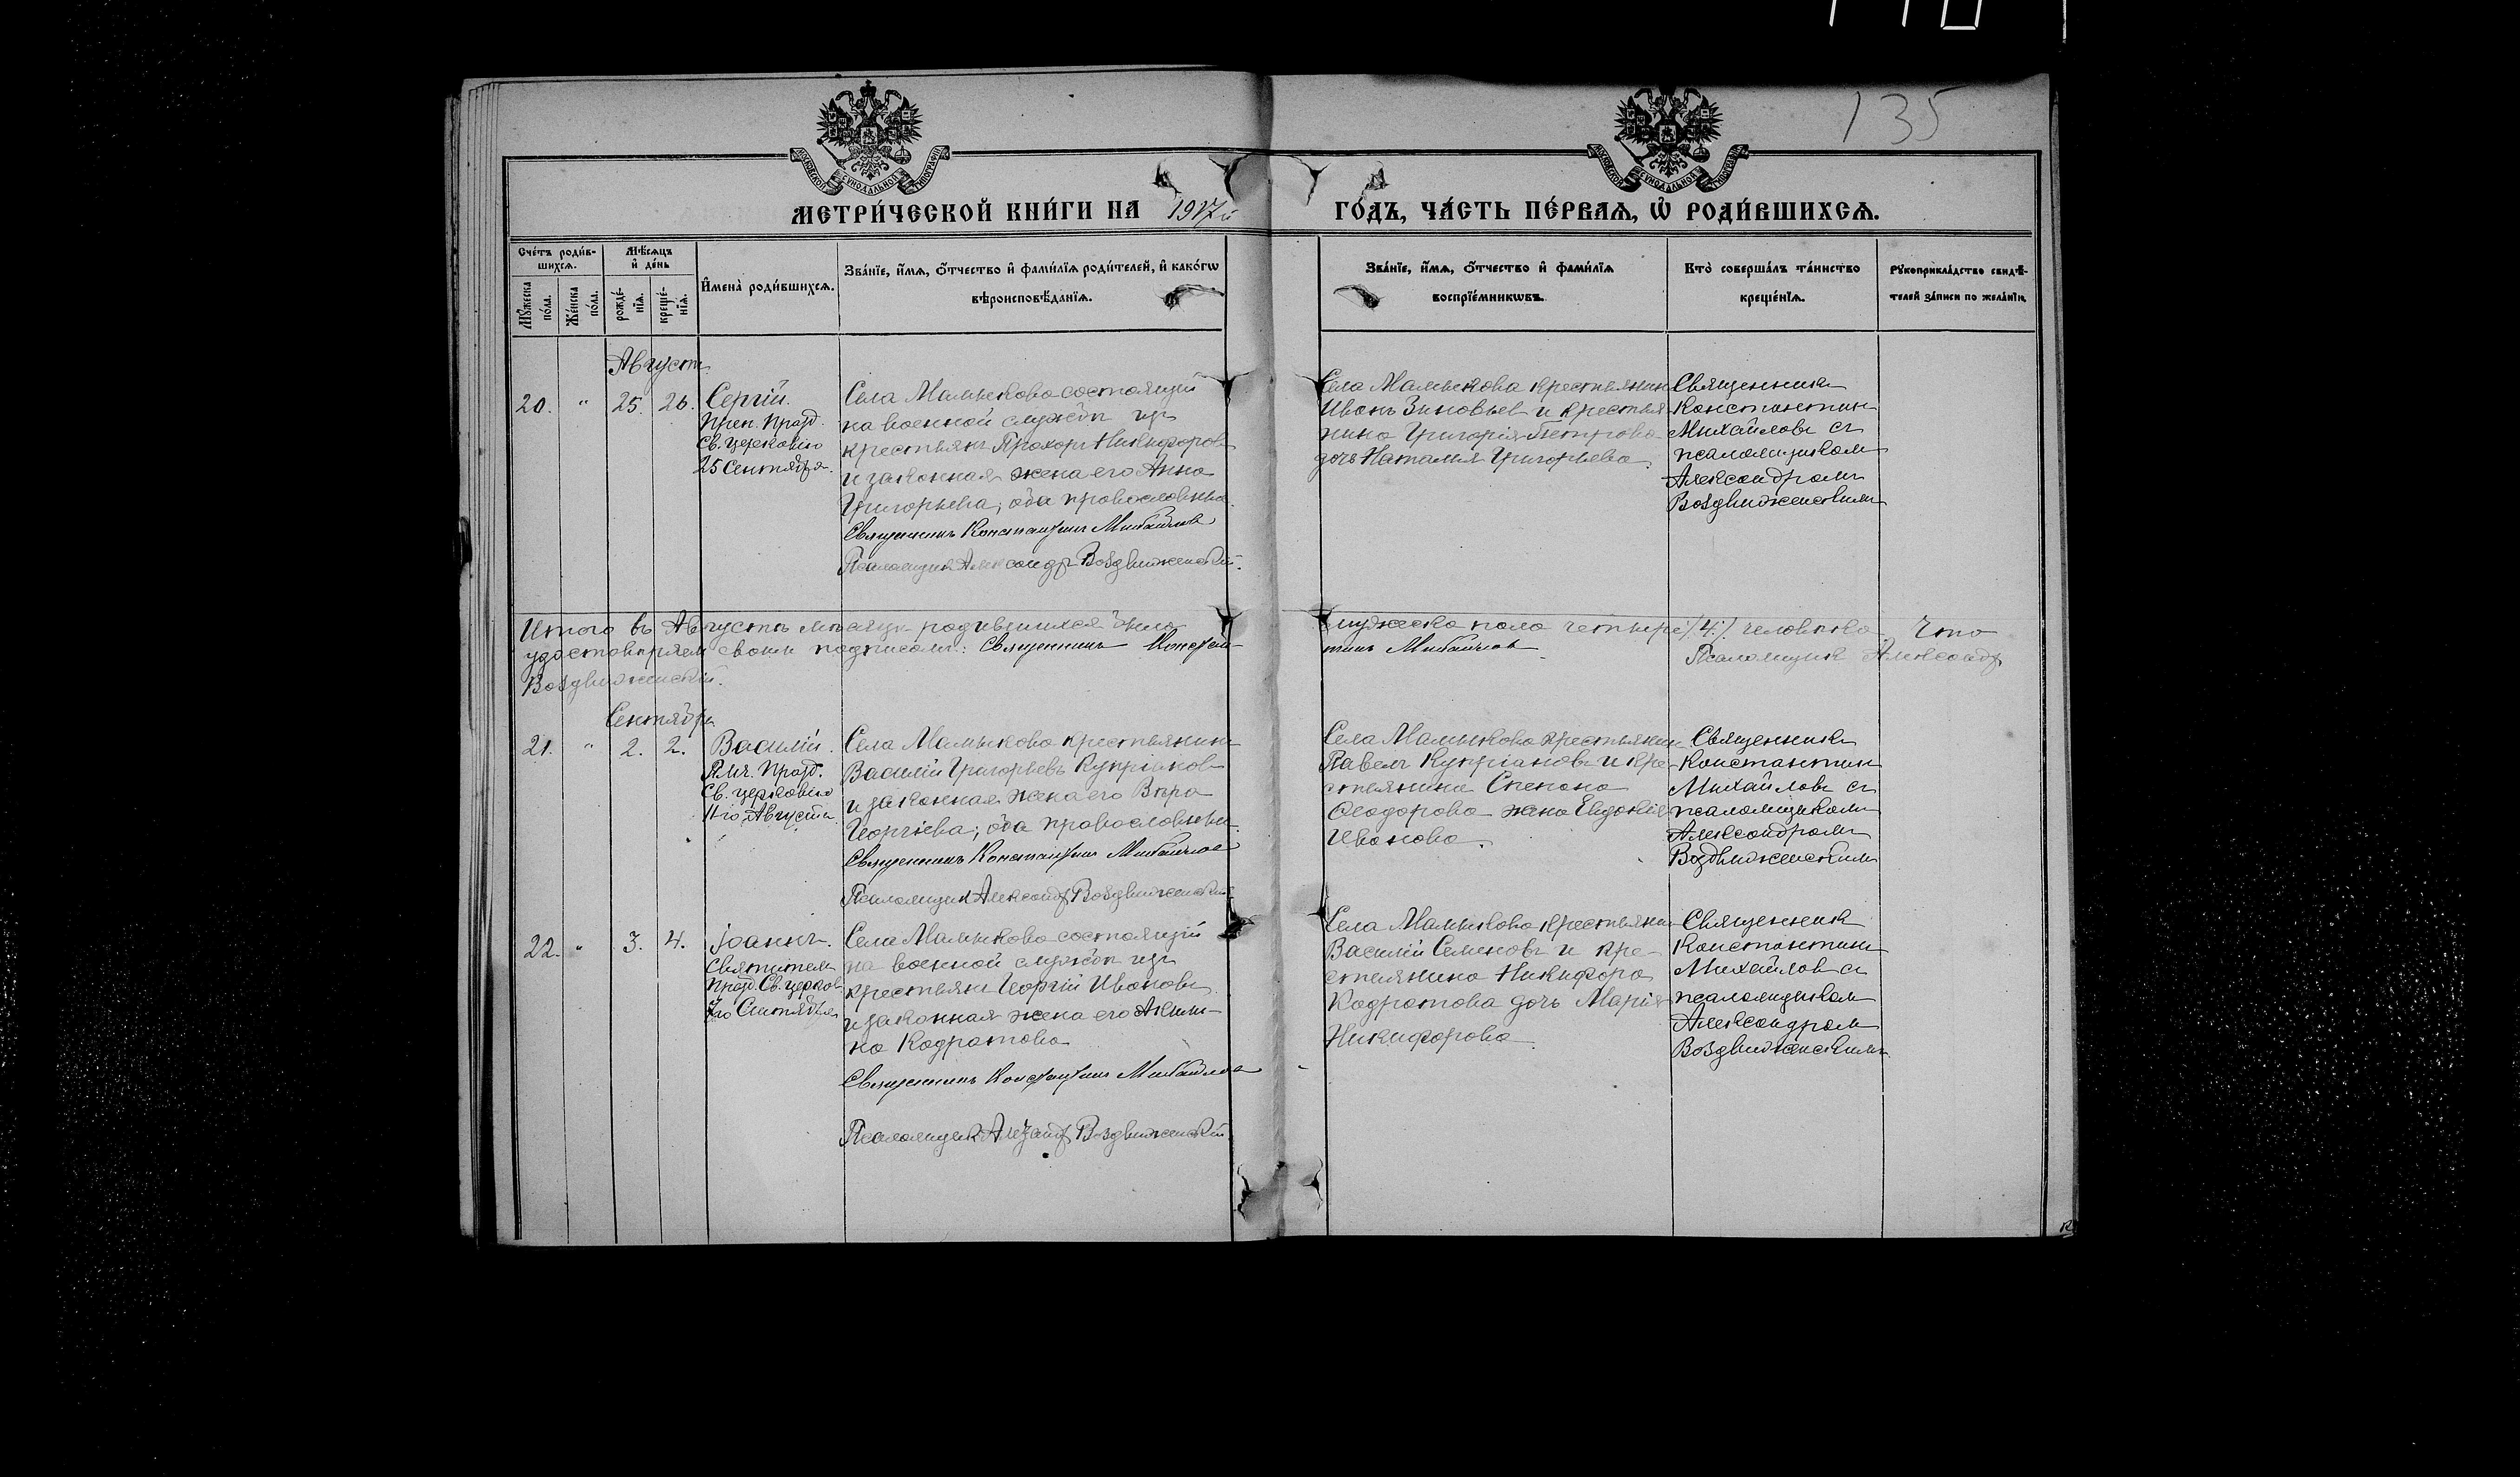 135
МОСКОВСКОЙ СУНОДАЛЬНОЙ ТИПОГРАФІИ
МОСКОВСКОЙ СУНОДАЛЬНОЙ ТИПОГРАФІИ
МЕТРИ́ЧЕСКОЙ КНИ́ГИ НА 1917й ГО́ДЪ, ЧА́СТЬ ПЕ́РВАЯ, Ѡ҆ РОДИ́ВШИХСЯ.
Сче́тъ роди́в-
шихся.
Мѣ́сяцъ
и҆ де́нь
Мꙋ́жеска
по́ла.
Же́нска
по́ла.
рожде́-
нїя.
креще́-
нїя.
И҆мена̀ роди́вшихся.
Зва́нїе, и҆́мя, ѻ҆́тчество и҆ фами́лїя роди́телей, и҆ како́гѡ
вѣроисповѣ́данїя.
Зва́нїе, и҆́мя, ѻ҆́тчество и҆ фами́лїя
воспрїе́мникѡвъ.
Кто̀ соверша́лъ та́инство
креще́нїя.
Рꙋкоприкла́дство свидѣ́-
телей за́писи по жела́нїю.
Августъ
20. " 25. 26.
Сергій.
Преп. Празд.
Св. церковію
25 Сентября.
Села Мамыково состоящій
на военной службѣ изъ
крестьянъ Прохоръ Никифоровъ
и законная жена его Анна
Григорьева; оба православные.
Священникъ Константинъ Михайловъ
Псаломщикъ Александръ Воздвиженскій.
Села Мамыкова крестьянинъ
Иванъ Зиновьевъ и крестья-
нина Григорія Петрова
дочь Наталія Григорьева.
Священникъ
Константинъ
Михайловъ съ
псаломщикомъ
Александромъ
Воздвиженскимъ
Итого въ Августѣ мѣсяцѣ родившихся было мужеска пола четыре /4./ человѣка. Что
удостовѣряемъ своими подписями: Священникъ Констан-
тинъ Михайловъ Псаломщикъ Александръ
Воздвиженскій.
Сентябрь
21. " 2. 2.
Василій.
Мч. Празд.
Св. церковію
11-го Августа.
Села Мамыкова крестьянинъ
Василій Григорьевъ Купріановъ
и законная жена его Вѣра
Георгіева; оба православные.
Священникъ Константинъ Михайловъ
Псаломщикъ Александръ Воздвиженскій
Села Мамыкова крестьянинъ
Павелъ Купріановъ и кре-
стьянина Степана
Ѳеодорова жена Евдокія
Иванова.
Священникъ
Константинъ
Михайловъ съ
псаломщикомъ
Александромъ
Воздвиженскимъ
22. " 3. 4.
Іоаннъ.
Святителя
Празд. Св. церков.
7го Сентября
Села Мамыкова состоящій
на военной службѣ изъ
крестьянъ Георгій Ивановъ
и законная жена его Акили-
на Кадратова
Священникъ Константинъ Михайловъ
Псаломщикъ Александръ Воздвиженскій.
Села Мамыкова крестьянинъ
Василій Семеновъ и кре-
стьянина Никифора
Кадратова дочь Марія
Никифорова.
Священникъ
Константинъ
Михайловъ съ
псаломщикомъ
Александромъ
Воздвиженскимъ